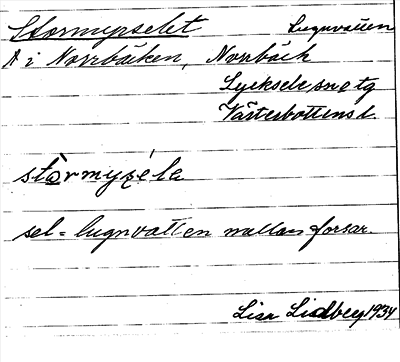 Stormyrselet Lugnvatten
A i Norrbäcken, Norrbäck
Lycksele snetg
Västerbottens l.
stòrmyṛśe̥le
sel = lugnvatten mellan forsar
Lisa Lidberg 1934